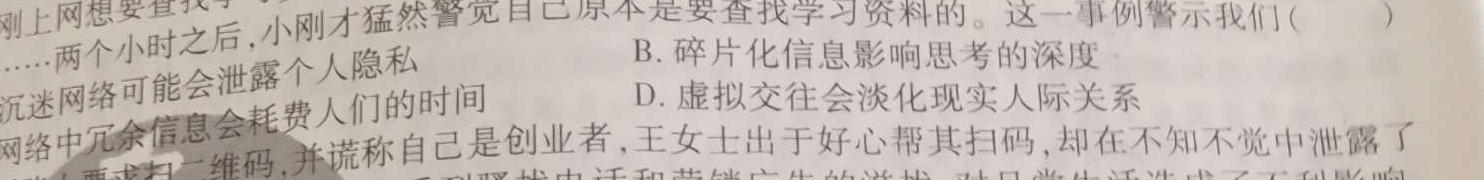 刚上网想要查找学
……两个小时之后,小刚才猛然警觉自己原本是要查找学习资料的。这一事例警示我们(  )
沉迷网络可能会泄露个人隐私 B. 碎片化信息影响思考的深度
网络中冗余信息会耗费人们的时间 D. 虚拟交往会淡化现实人际关系
要求扫二维码,并谎称自己是创业者,王女士出于好心帮其扫码,却在不知不觉中泄露了